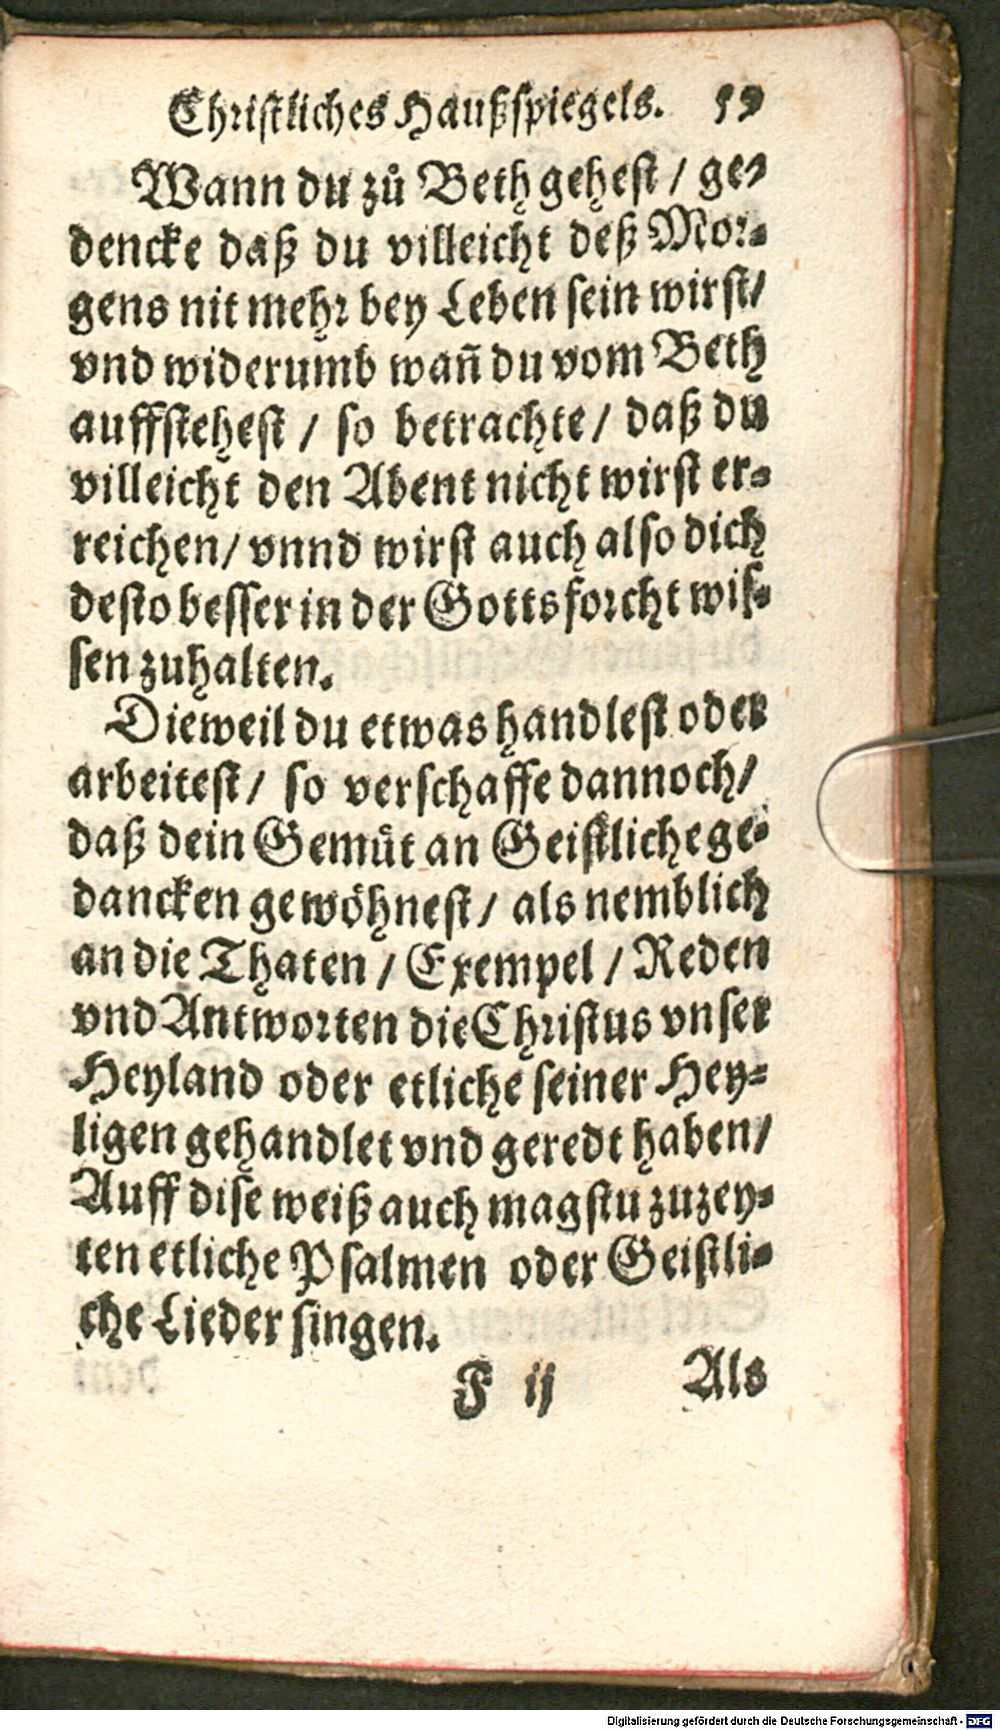 Christliches Haußspiegels. 59
Wann du zů Beth gehest / ge-
dencke daß du villeicht deß Mor-
gens nit mehr bey Leben sein wirst/
vnd widerumb wañ du vom Beth
auffstehest / so betrachte / daß du
villeicht den Abent nicht wirst er-
reichen / vnnd wirst auch also dich
desto besser in der Gottsforcht wis-
sen zuhalten.
Dieweil du etwas handlest oder
arbeitest / so verschaffe dannoch /
daß dein Gemůt an Geistliche ge-
dancken gewöhnest / als nemblich
an die Thaten / Exempel / Reden
vnd Antworten die Christus vnser
Heyland oder etliche seiner Hey-
ligen gehandlet vnd geredt haben /
Auff dise weiß auch magstu zuzey-
ten etliche Psalmen oder Geistli-
che Lieder singen.
F ij Als
Digitalisierung gefördert durch die Deutsche Forschungsgemeinschaft - DFG